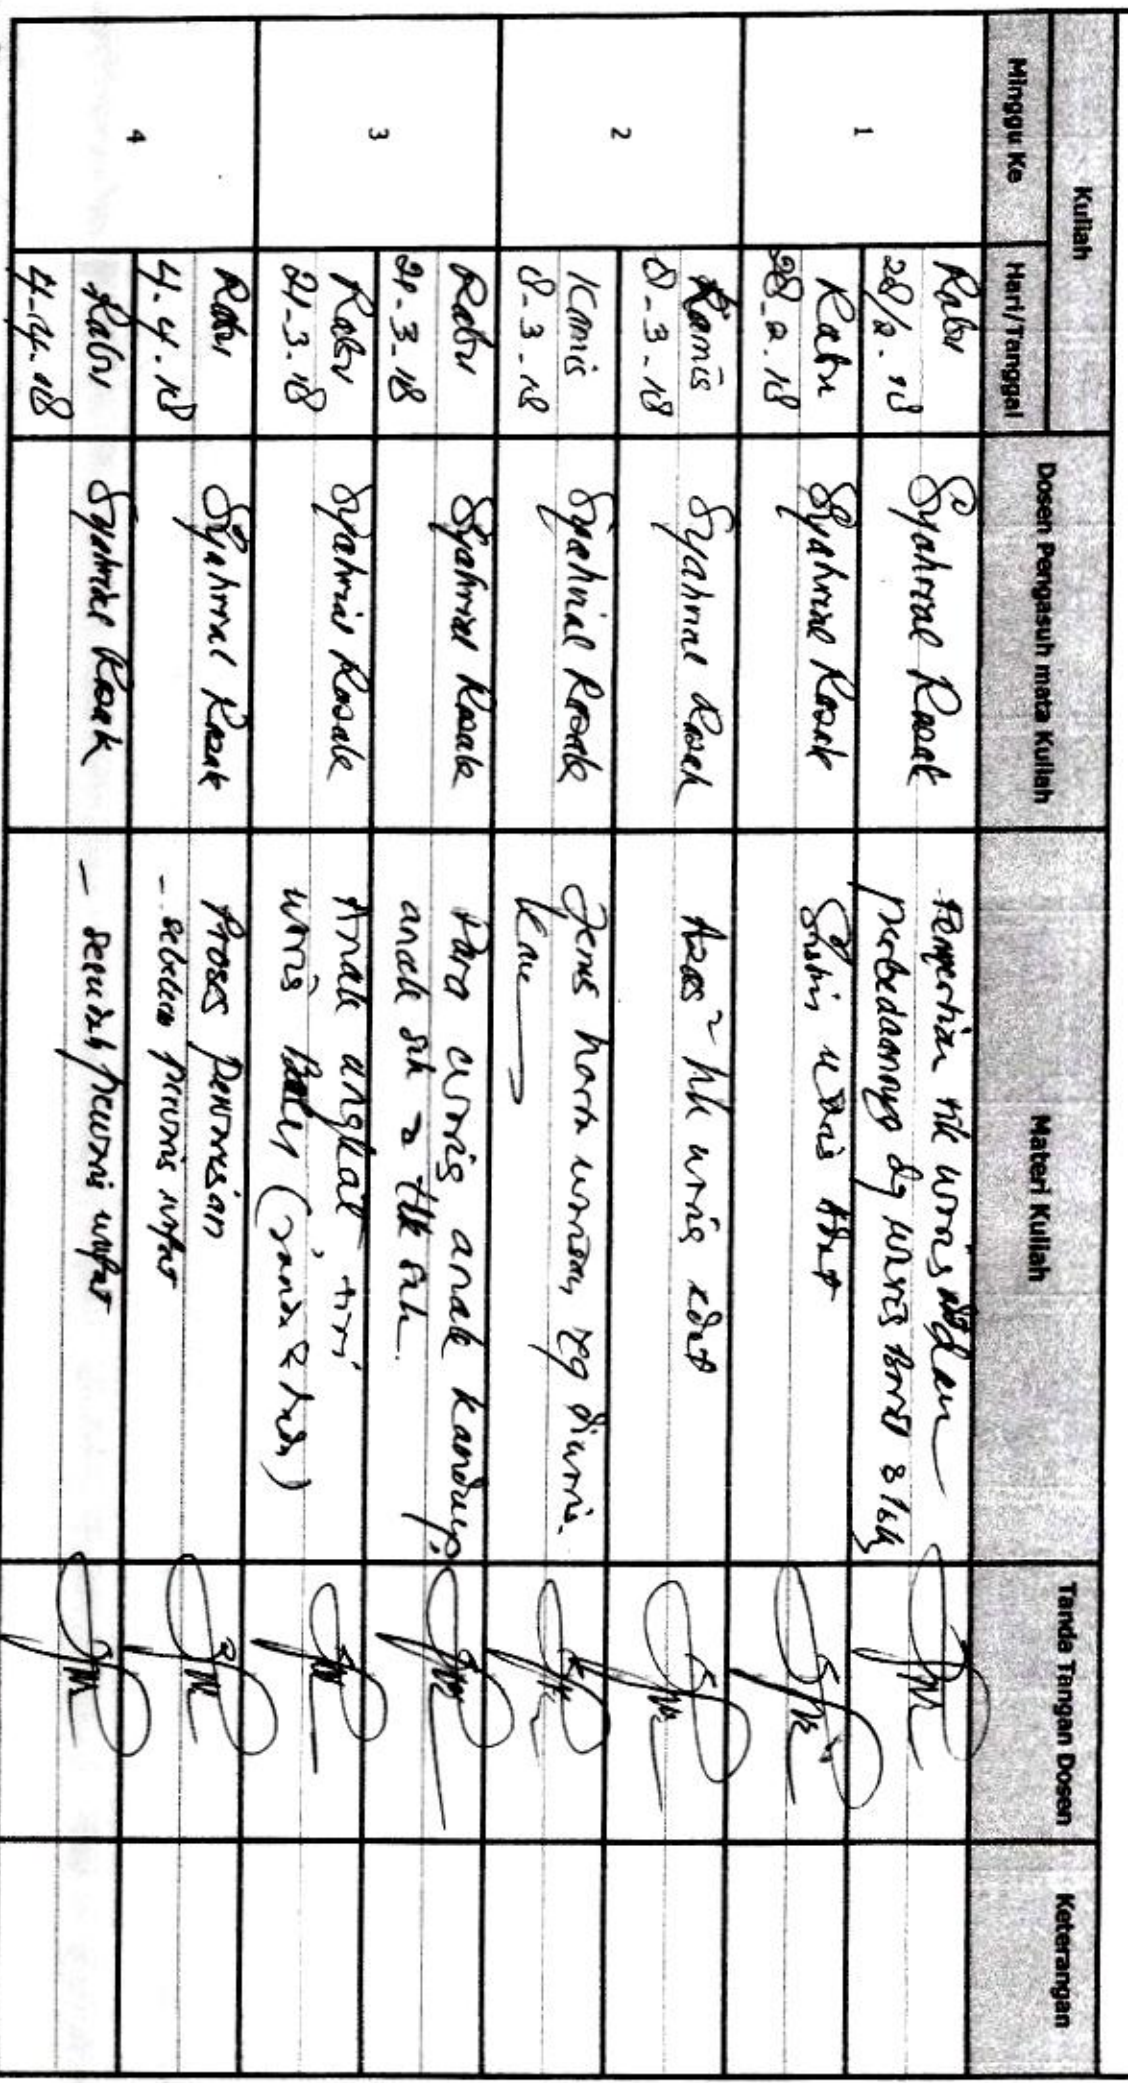 Kuliah
Minggu Ke
Hari/Tanggal
Dosen Pengasuh mata Kuliah
Materi Kuliah
Tanda Tangan Dosen
Keterangan
1
Rabu
28/2.18
Syahrial Razak
Pengertian hk waris adat dan
perbedaannya dg waris Barat & Isl
Rabu
28.2.18
Syahrial Razak
waris Adat
2
Kamis
8-3-18
Syahrial Razak
Azas² hk waris adat
Kamis
8-3-18
Syahrial Razak
Jenis harta warisan yg diwaris-
kan
3
Rabu
21-3-18
Syahrial Razak
Para waris anak kandung,
anak sah & tdk sah.
Rabu
21-3-18
Syahrial Razak
Anak angkat, tiri
waris (janda & duda)
4
Rabu
4.4.18
Syahrial Razak
Proses pewarisan
- sebelum pewaris wafat
Rabu
4-4-18
Syahrial Razak
- sesudah pewaris wafat